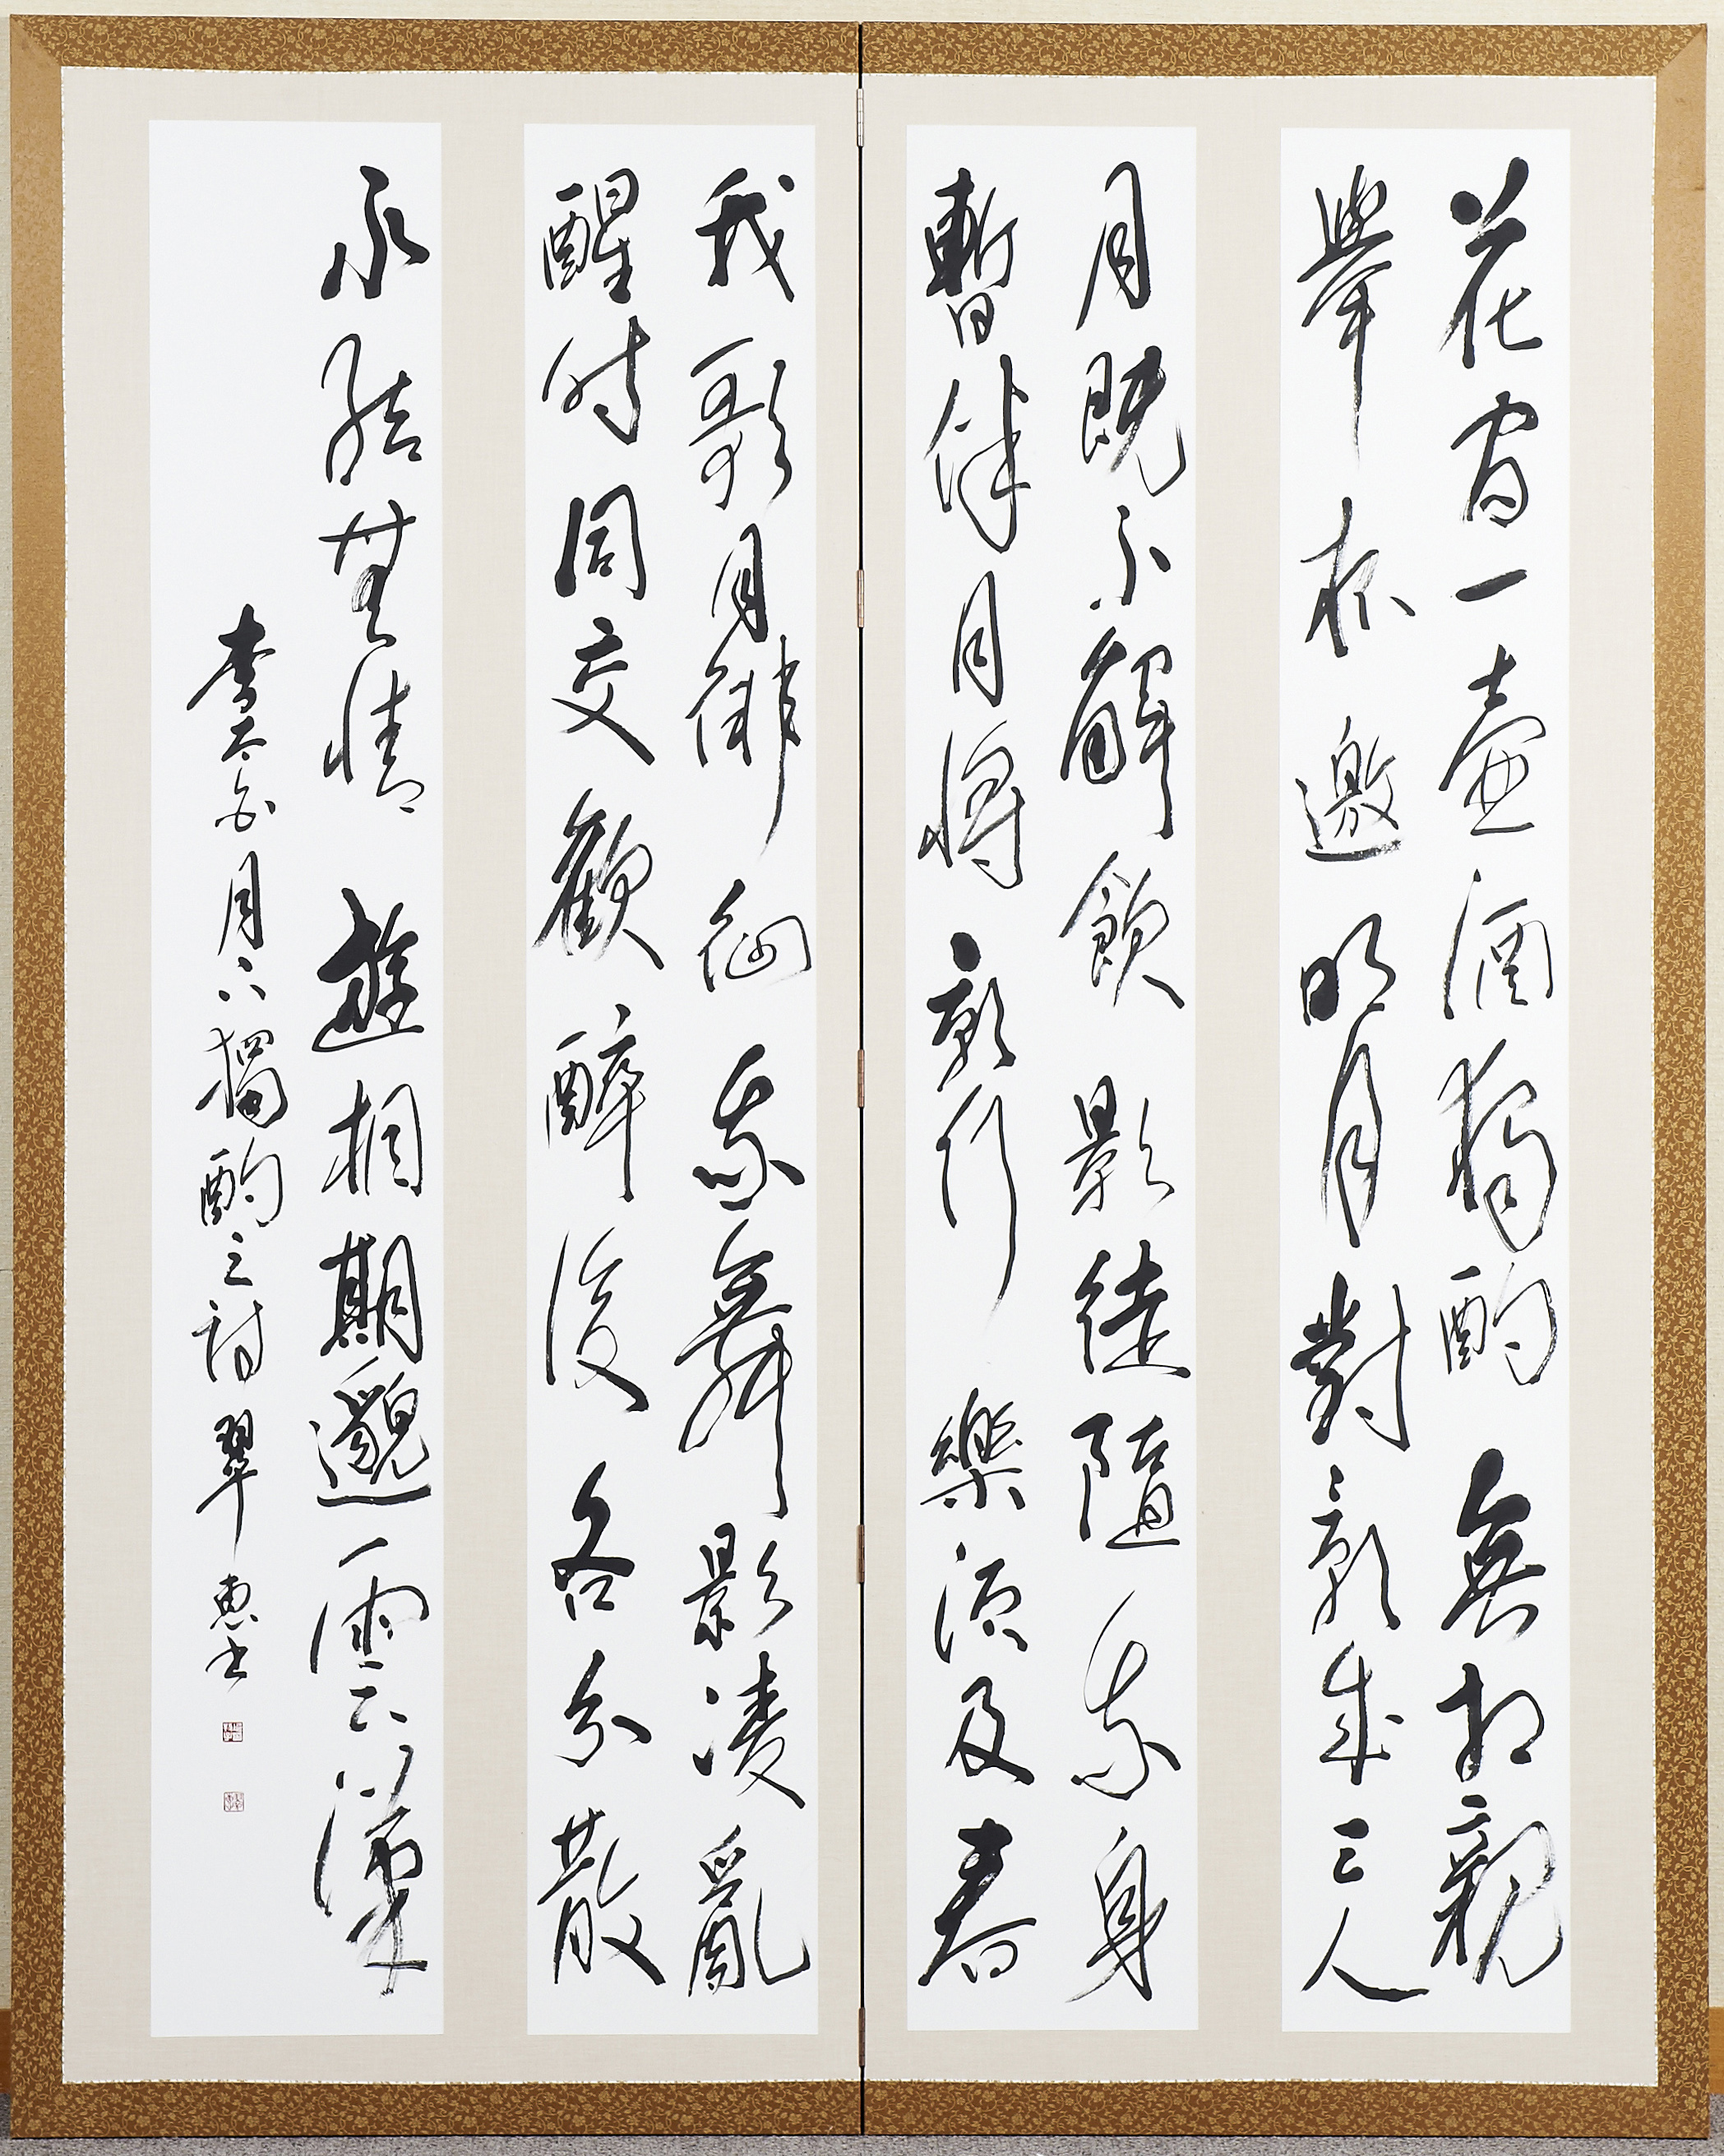 花間一壺酒獨酌無相親
舉杯邀明月對影成三人
月既不解飲影徒隨我身
暫伴月將影行樂須及春
我歌月徘徊我舞影凌亂
醒時同交歡醉後各分散
永結無情遊相期邈雲漢
李太白月下獨酌之詩 翠恵書